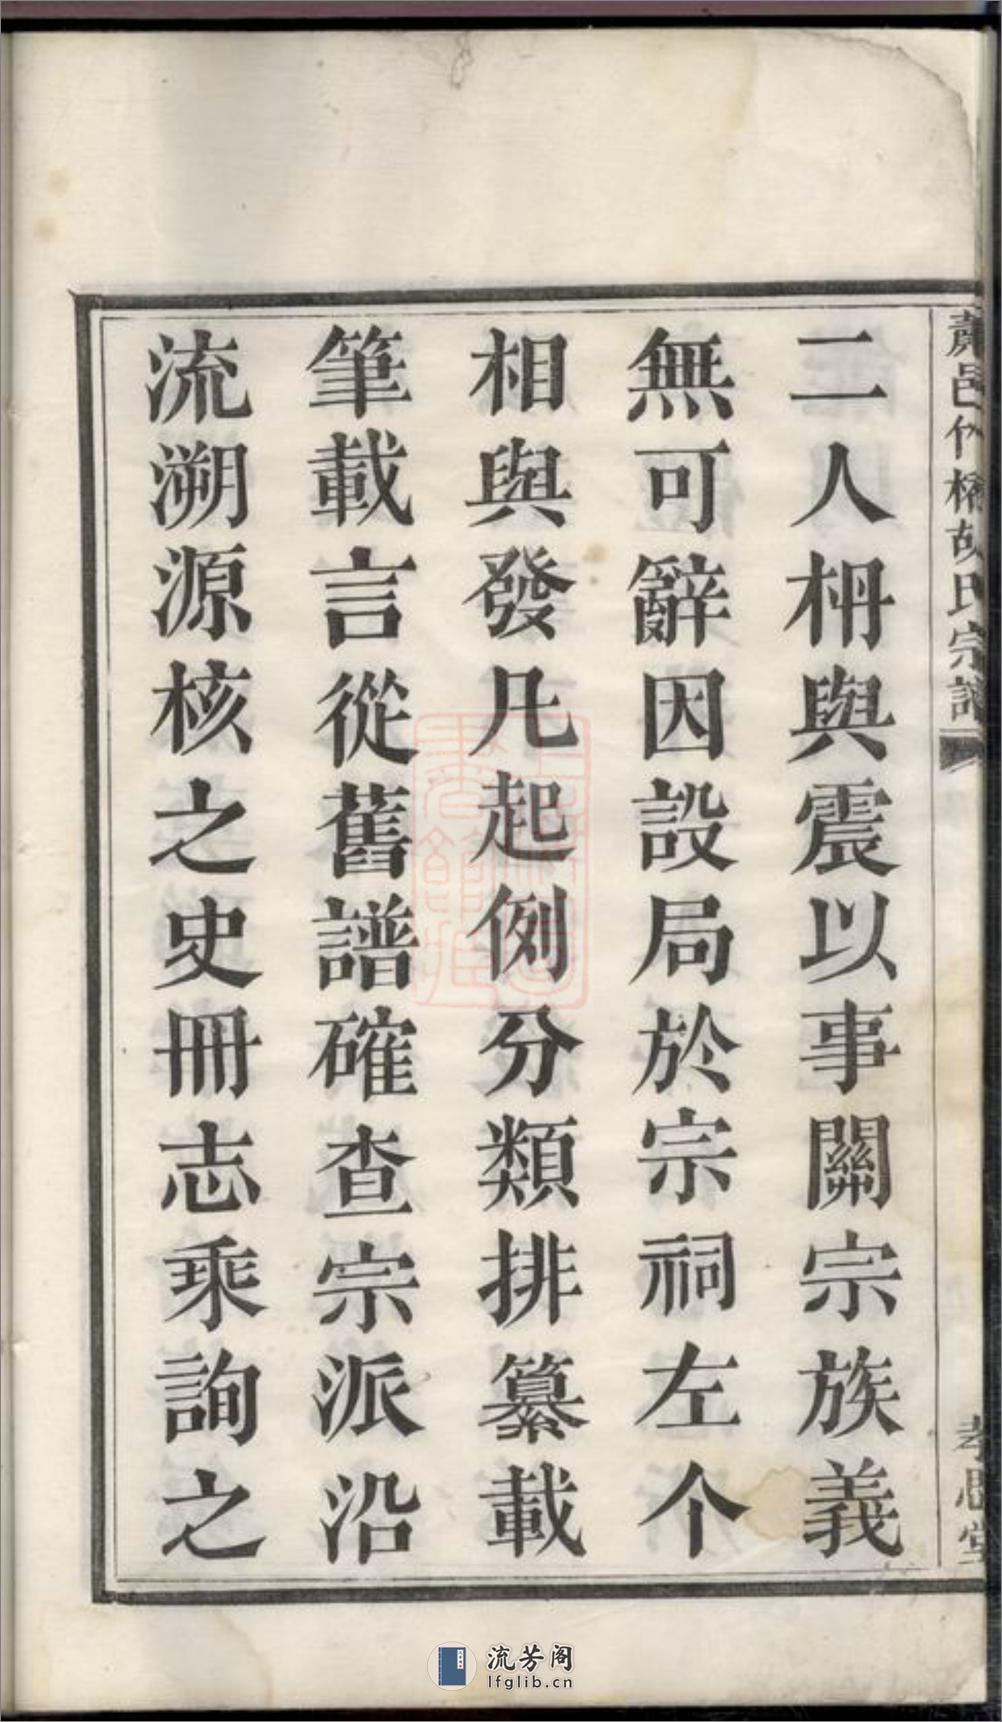 二人枬與震以事關宗族義
無可辭因設局於宗祠左个
相與發凡起例分類排纂載
筆載言從舊譜確查宗派沿
流溯源核之史冊志乘詢之
邑 橋胡氏宗譜
孝思堂
流芳阁
lfglib.cn